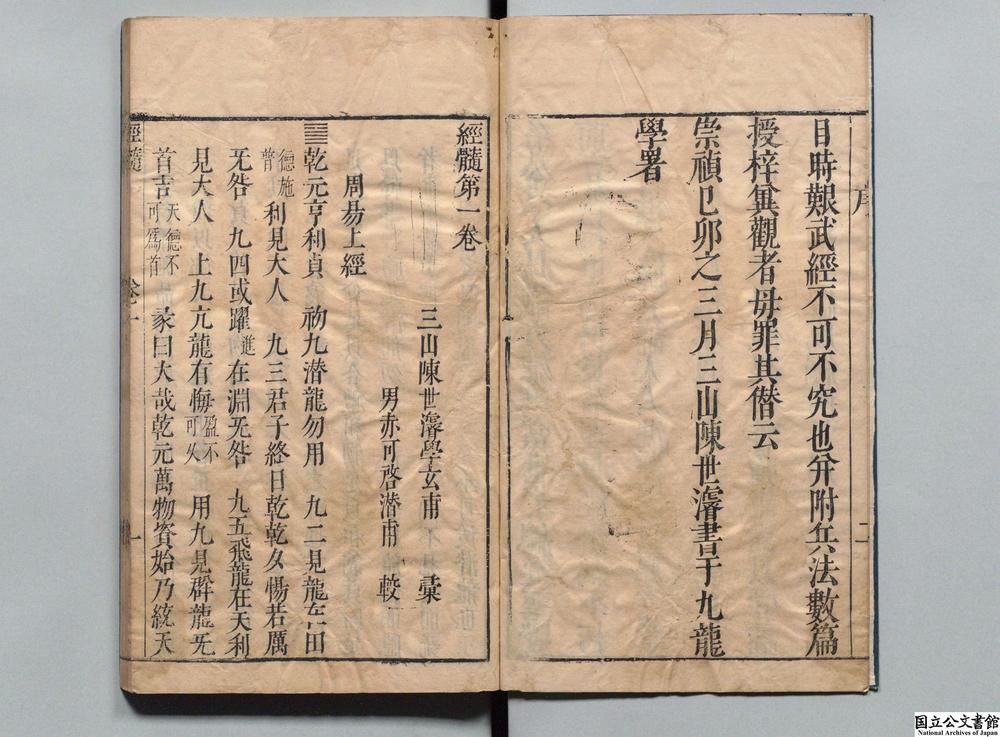 序
二
目時艱武經不可不究也并附兵法數篇
授梓兾觀者毋罪其僭云
崇禎己卯之三月三山陳世濬書于九龍
學署
經髓第一卷
三山陳世濬學玄甫 彙
男赤可啓潜甫 較
周昜上經
乾元亨利貞 初九潜龍勿用 九二見龍在田
德施普利見大人 九三君子終日乾乾夕惕若厲
旡咎 九四或躍進在淵旡咎 九五飛龍在天利
見大人 上九亢龍有悔盈不可久 用九見群龍旡
首吉天德不可爲首 彖曰大哉乾元萬物資始乃統天
經髓
卷一
一
国立公文書館
National Archives of Japan